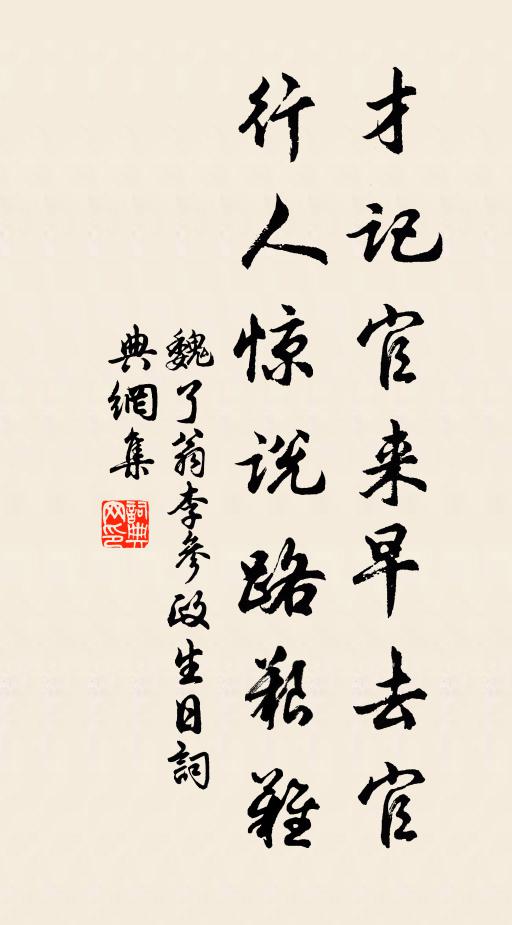 才记官来早去官
行人惊说路艰难
魏了翁李参政生日詞
典網集
詞典网印